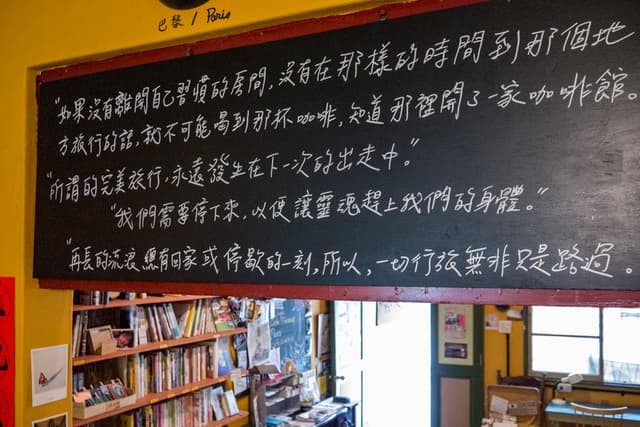 巴黎 / Paris
"如果沒有離開自己習慣的房間,沒有在那樣的時間到那個地
方旅行的話,就不可能喝到那杯咖啡,知道那裡開了一家咖啡館。
"所謂的完美旅行,永遠發生在下一次的出走中。"
"我們需要停下來,以便讓靈魂趕上我們的身體。"
"再長的流浪總有回家或停歇的一刻,所以,一切行旅無非只是路過。